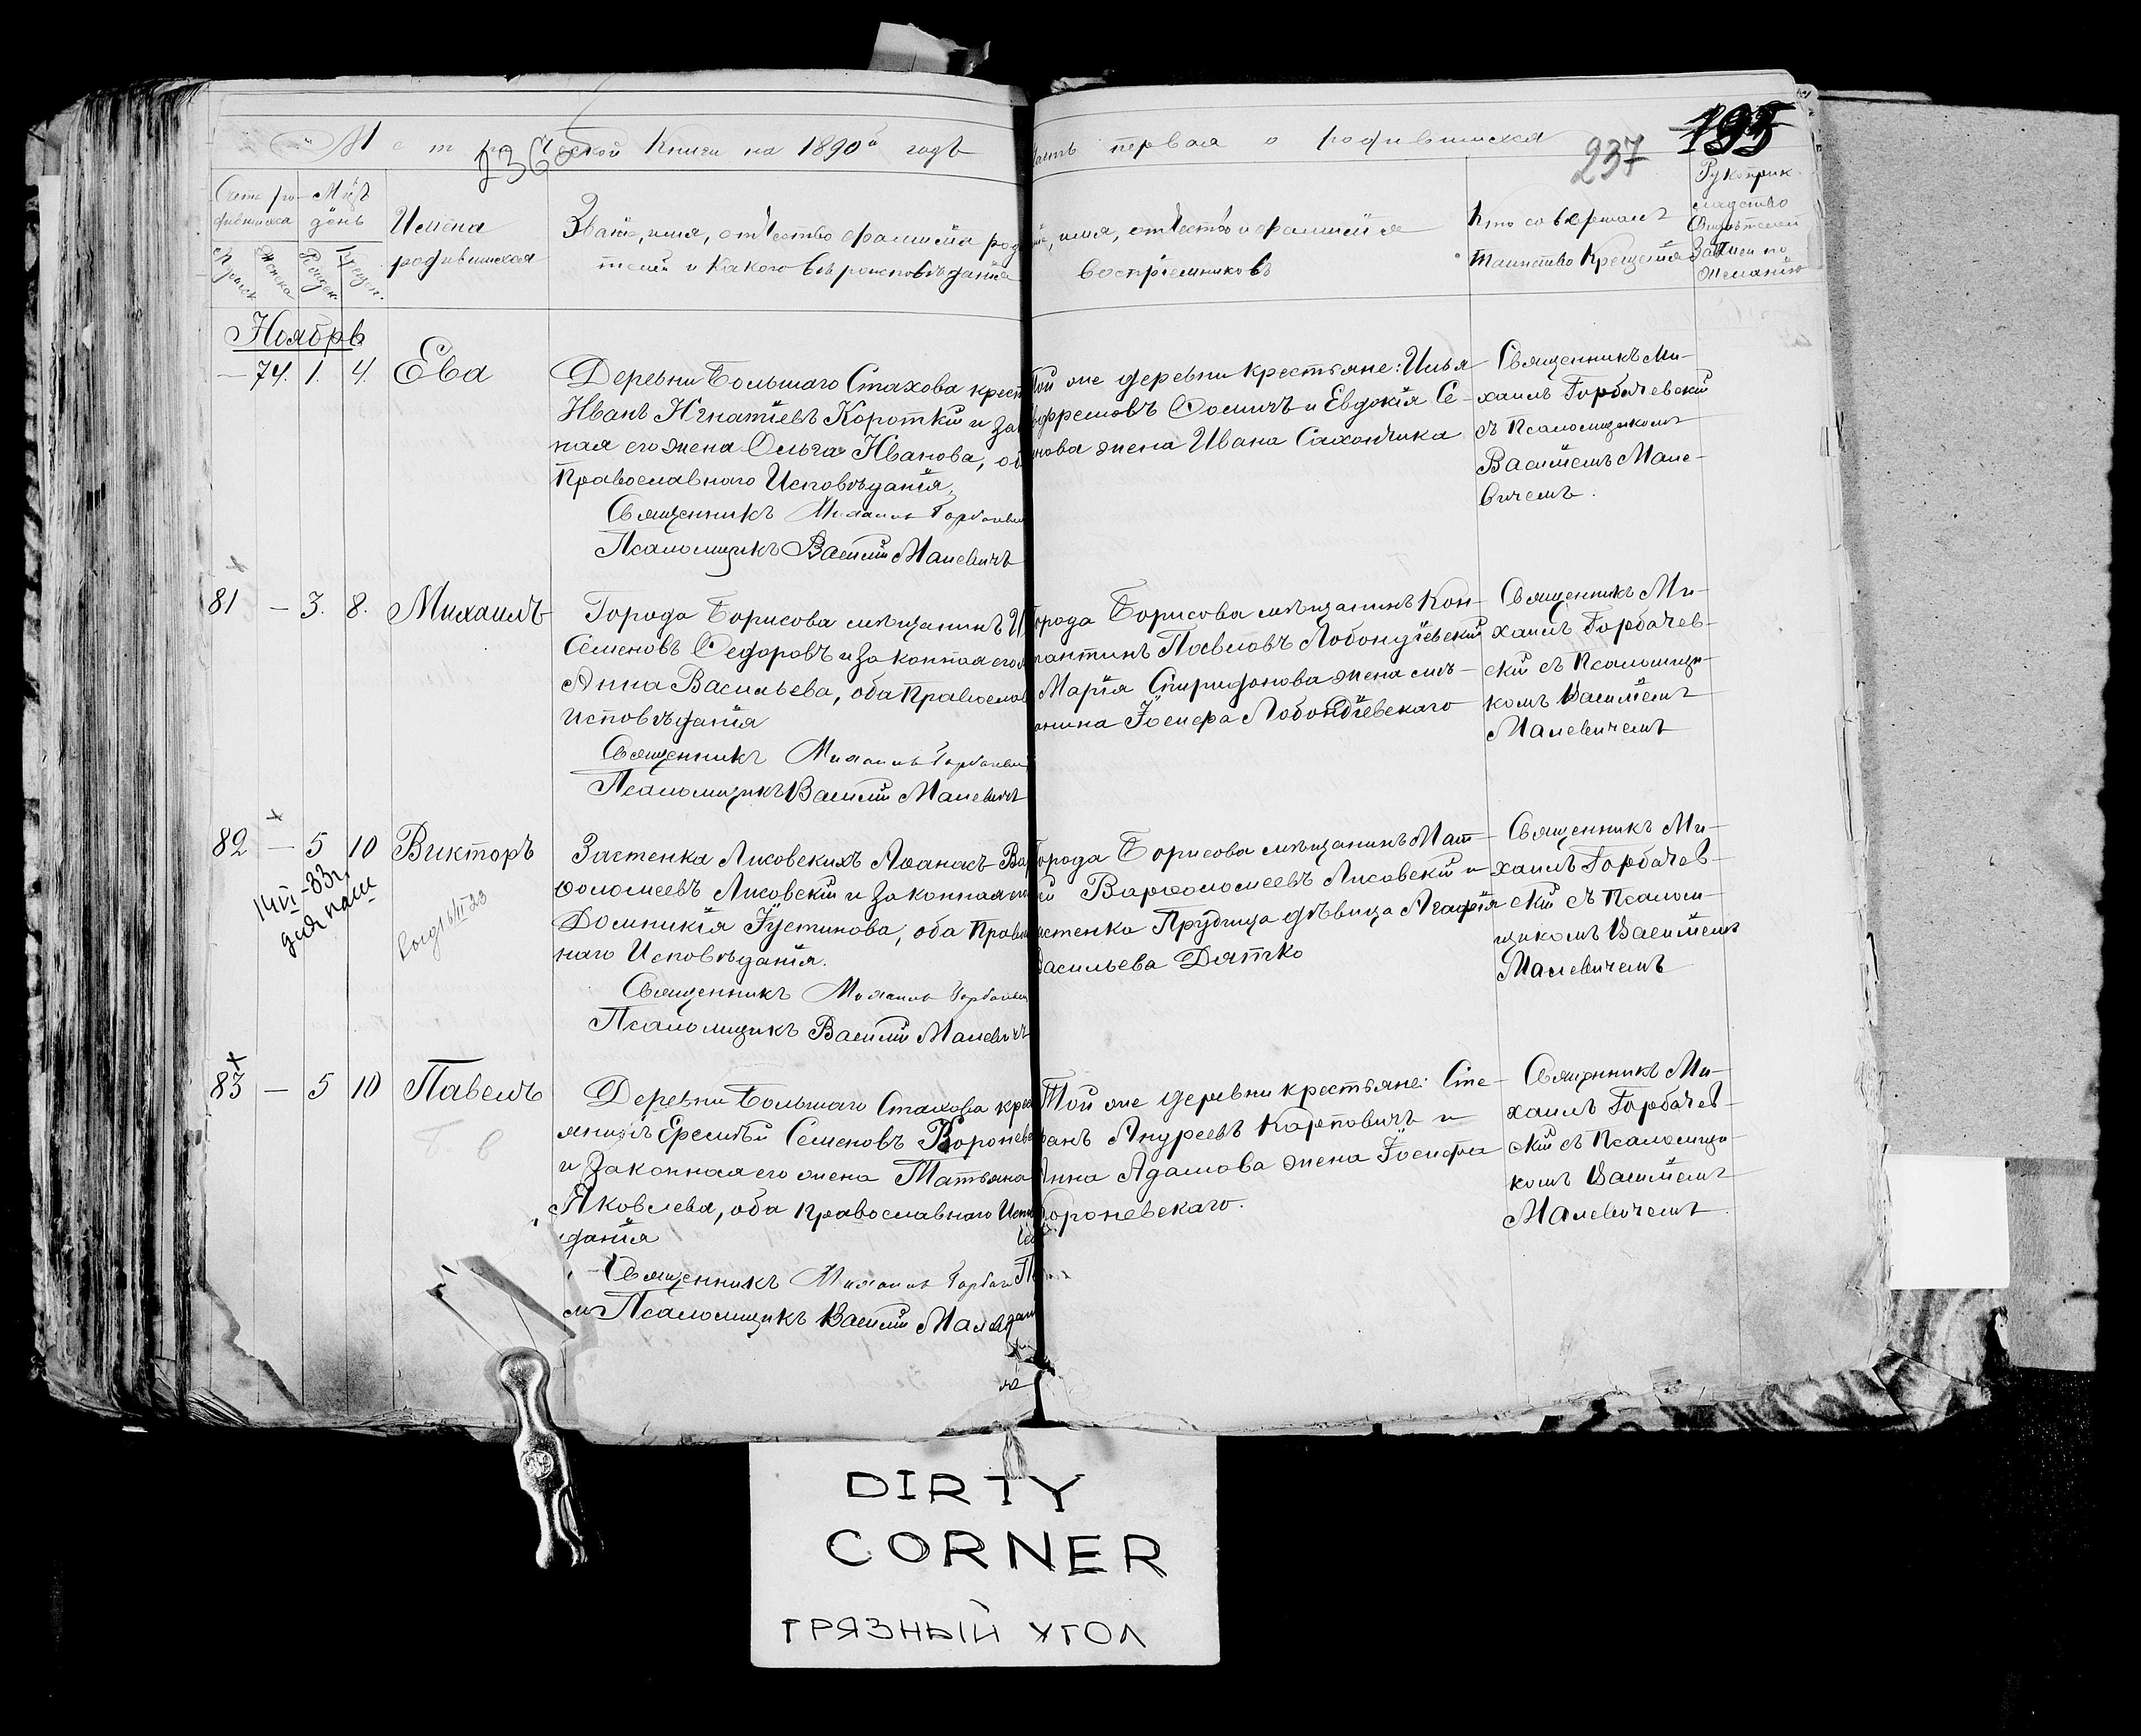 Метрической Книги на 1890й годъ
236
Часть первая о родившихся
237
195
Счетъ ро-
дившихся
Мцъ
день
Имена
родившихся
Званіе, имя, отчество фамилія роди
телей и какого вѣроисповѣданія
имя, отчество и фамилія
воспріемниковъ
Кто совершалъ
таинство Крещенія
Рукоприк-
ладство
Свидѣтелей
Записи по
желанію
Ноябрь
— 74. 1. 4. Ева
Деревни Большаго Стахова крест
Иванъ Игнатіевъ Короткій и зак
ная его жена Ольга Иванова, об
Православнаго Исповѣданія.
Священникъ Михаилъ Горбачевск
Псаломщикъ Василій Малевичъ
Той же деревни крестьяне: Илья
Ефремовъ Ѳомичъ и Евдокія Се-
нова жена Ивана Сахончика
Священникъ Ми-
хаилъ Горбачевскій
съ Псаломщикомъ
Василіемъ Мале-
вичемъ.
81 — 3. 8. Михаилъ
Города Борисова мѣщанинъ И
Семеновъ Ѳедоровъ и законная его
Анна Васильева, оба Православ
Исповѣданія
Священникъ Михаилъ Горбачевскі
Псаломщикъ Василій Малевичъ
Города Борисова мѣщанинъ Кон-
стантинъ Павловъ Лобондзіевскій
Марія Спиридонова жена мѣ-
анина Іосифа Лобондзіевскаго
Священникъ Ми-
хаилъ Горбачев-
скій съ Псаломщи-
комъ Василіемъ
Малевичемъ
82 — 5 10 Викторъ
14 VI - 33 г.
для пасп
выд 16/II 23
Застенка Лисовскихъ Аѳанасъ Вар
ѳоломеевъ Лисовскій и законная его
Домникія Іустинова, оба Правосл
наго Исповѣданія.
Священникъ Михаилъ Горбачевск
Псаломщикъ Василій Малевичъ
Города Борисова мѣщанинъ Мат-
ѳей Варѳоломеевъ Лисовскій и
застенка Прудища дѣвица Агафія
Васильева Дятко
Священникъ Ми-
хаилъ Горбачев-
скій съ Псалом-
щикомъ Василіемъ
Малевичемъ
83 — 5 10 Павелъ
Деревни Большаго Стахова крест
янинъ Еремѣй Семеновъ Воронев
и законная его жена Татьяна
Яковлева, оба православнаго Испо
данія
Священникъ Михаилъ Горбач
Псаломщикъ Василій Малев
Той же деревни крестьяне: Сте-
фанъ Андреевъ Карповичъ и
Анна Адамова жена Іосифа
Вороневскаго.
Священникъ Ми-
хаилъ Горбачев-
скій съ Псаломщи-
комъ Василіемъ
Малевичемъ.
DIRTY
CORNER
ГРЯЗНЫЙ УГОЛ